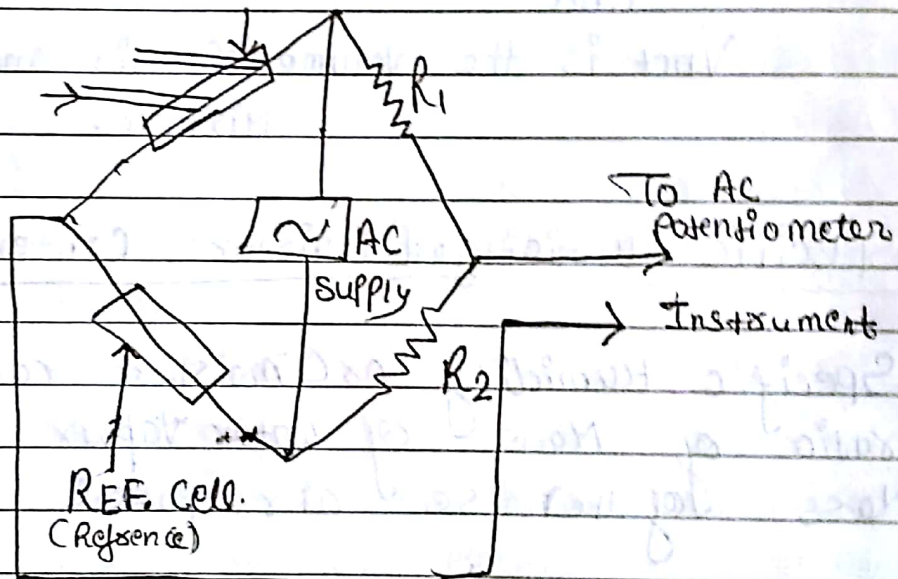 R1
To AC
Potentiometer
AC
Supply
Instrument
R2
REF. Cell.
(Refrence)